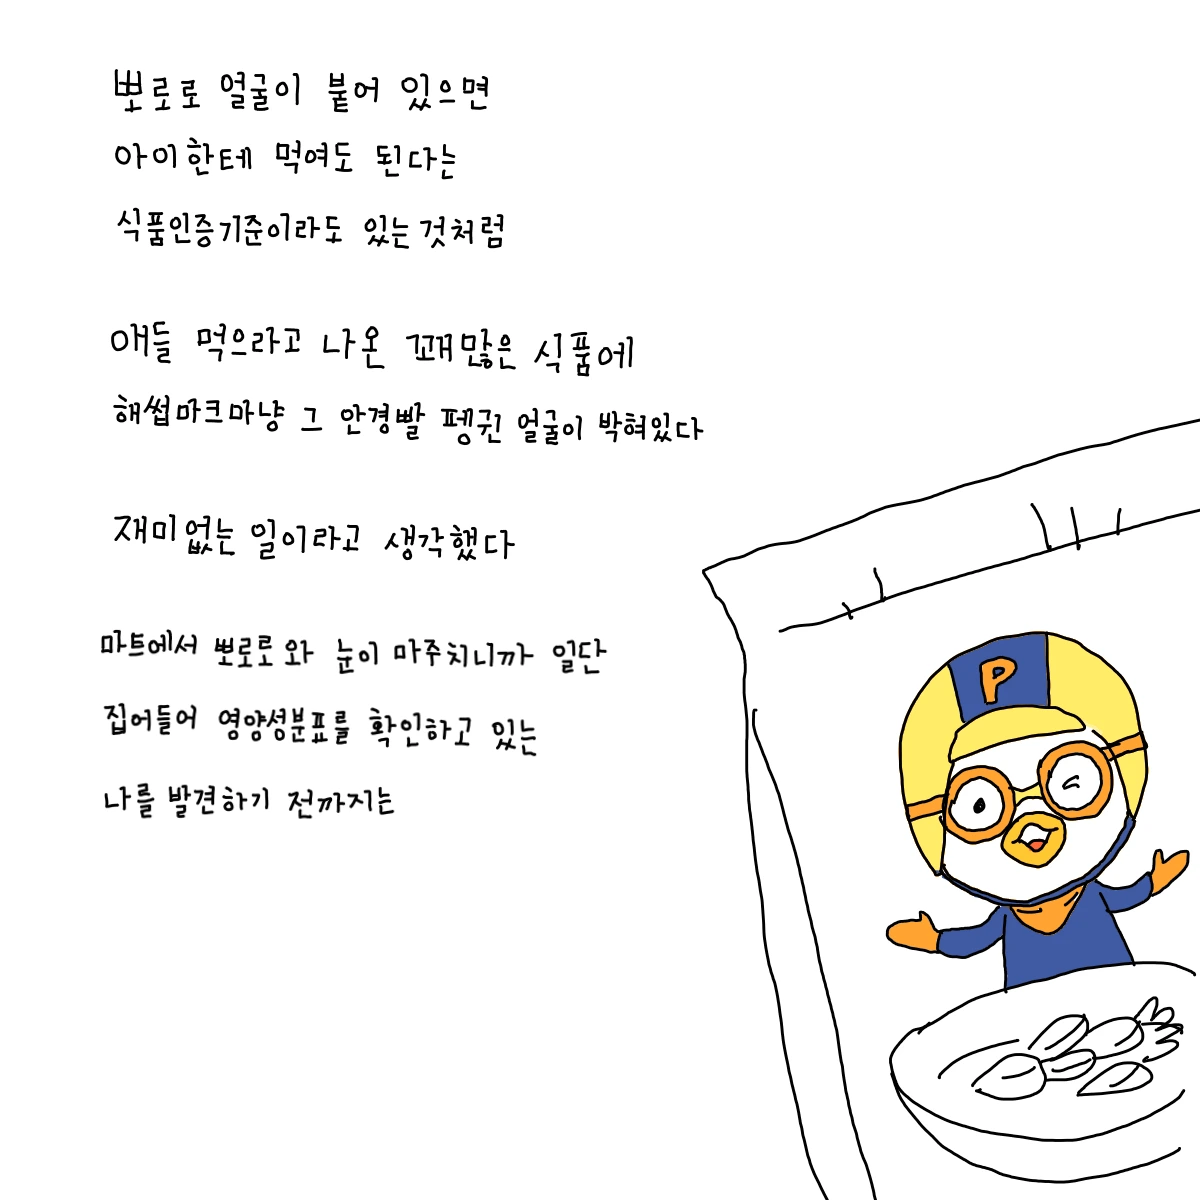 뽀로로 얼굴이 붙어 있으면
아이한테 먹여도 된다는
식품인증기준이라도 있는것처럼
애들 먹으라고 나온 꽤많은 식품에
해썹마크마냥 그 안경빨 펭귄 얼굴이 박혀있다
재미없는 일이라고 생각했다
마트에서 뽀로로와 눈이 마주치니까 일단
집어들어 영양성분표를 확인하고 있는
나를 발견하기 전까지는
P